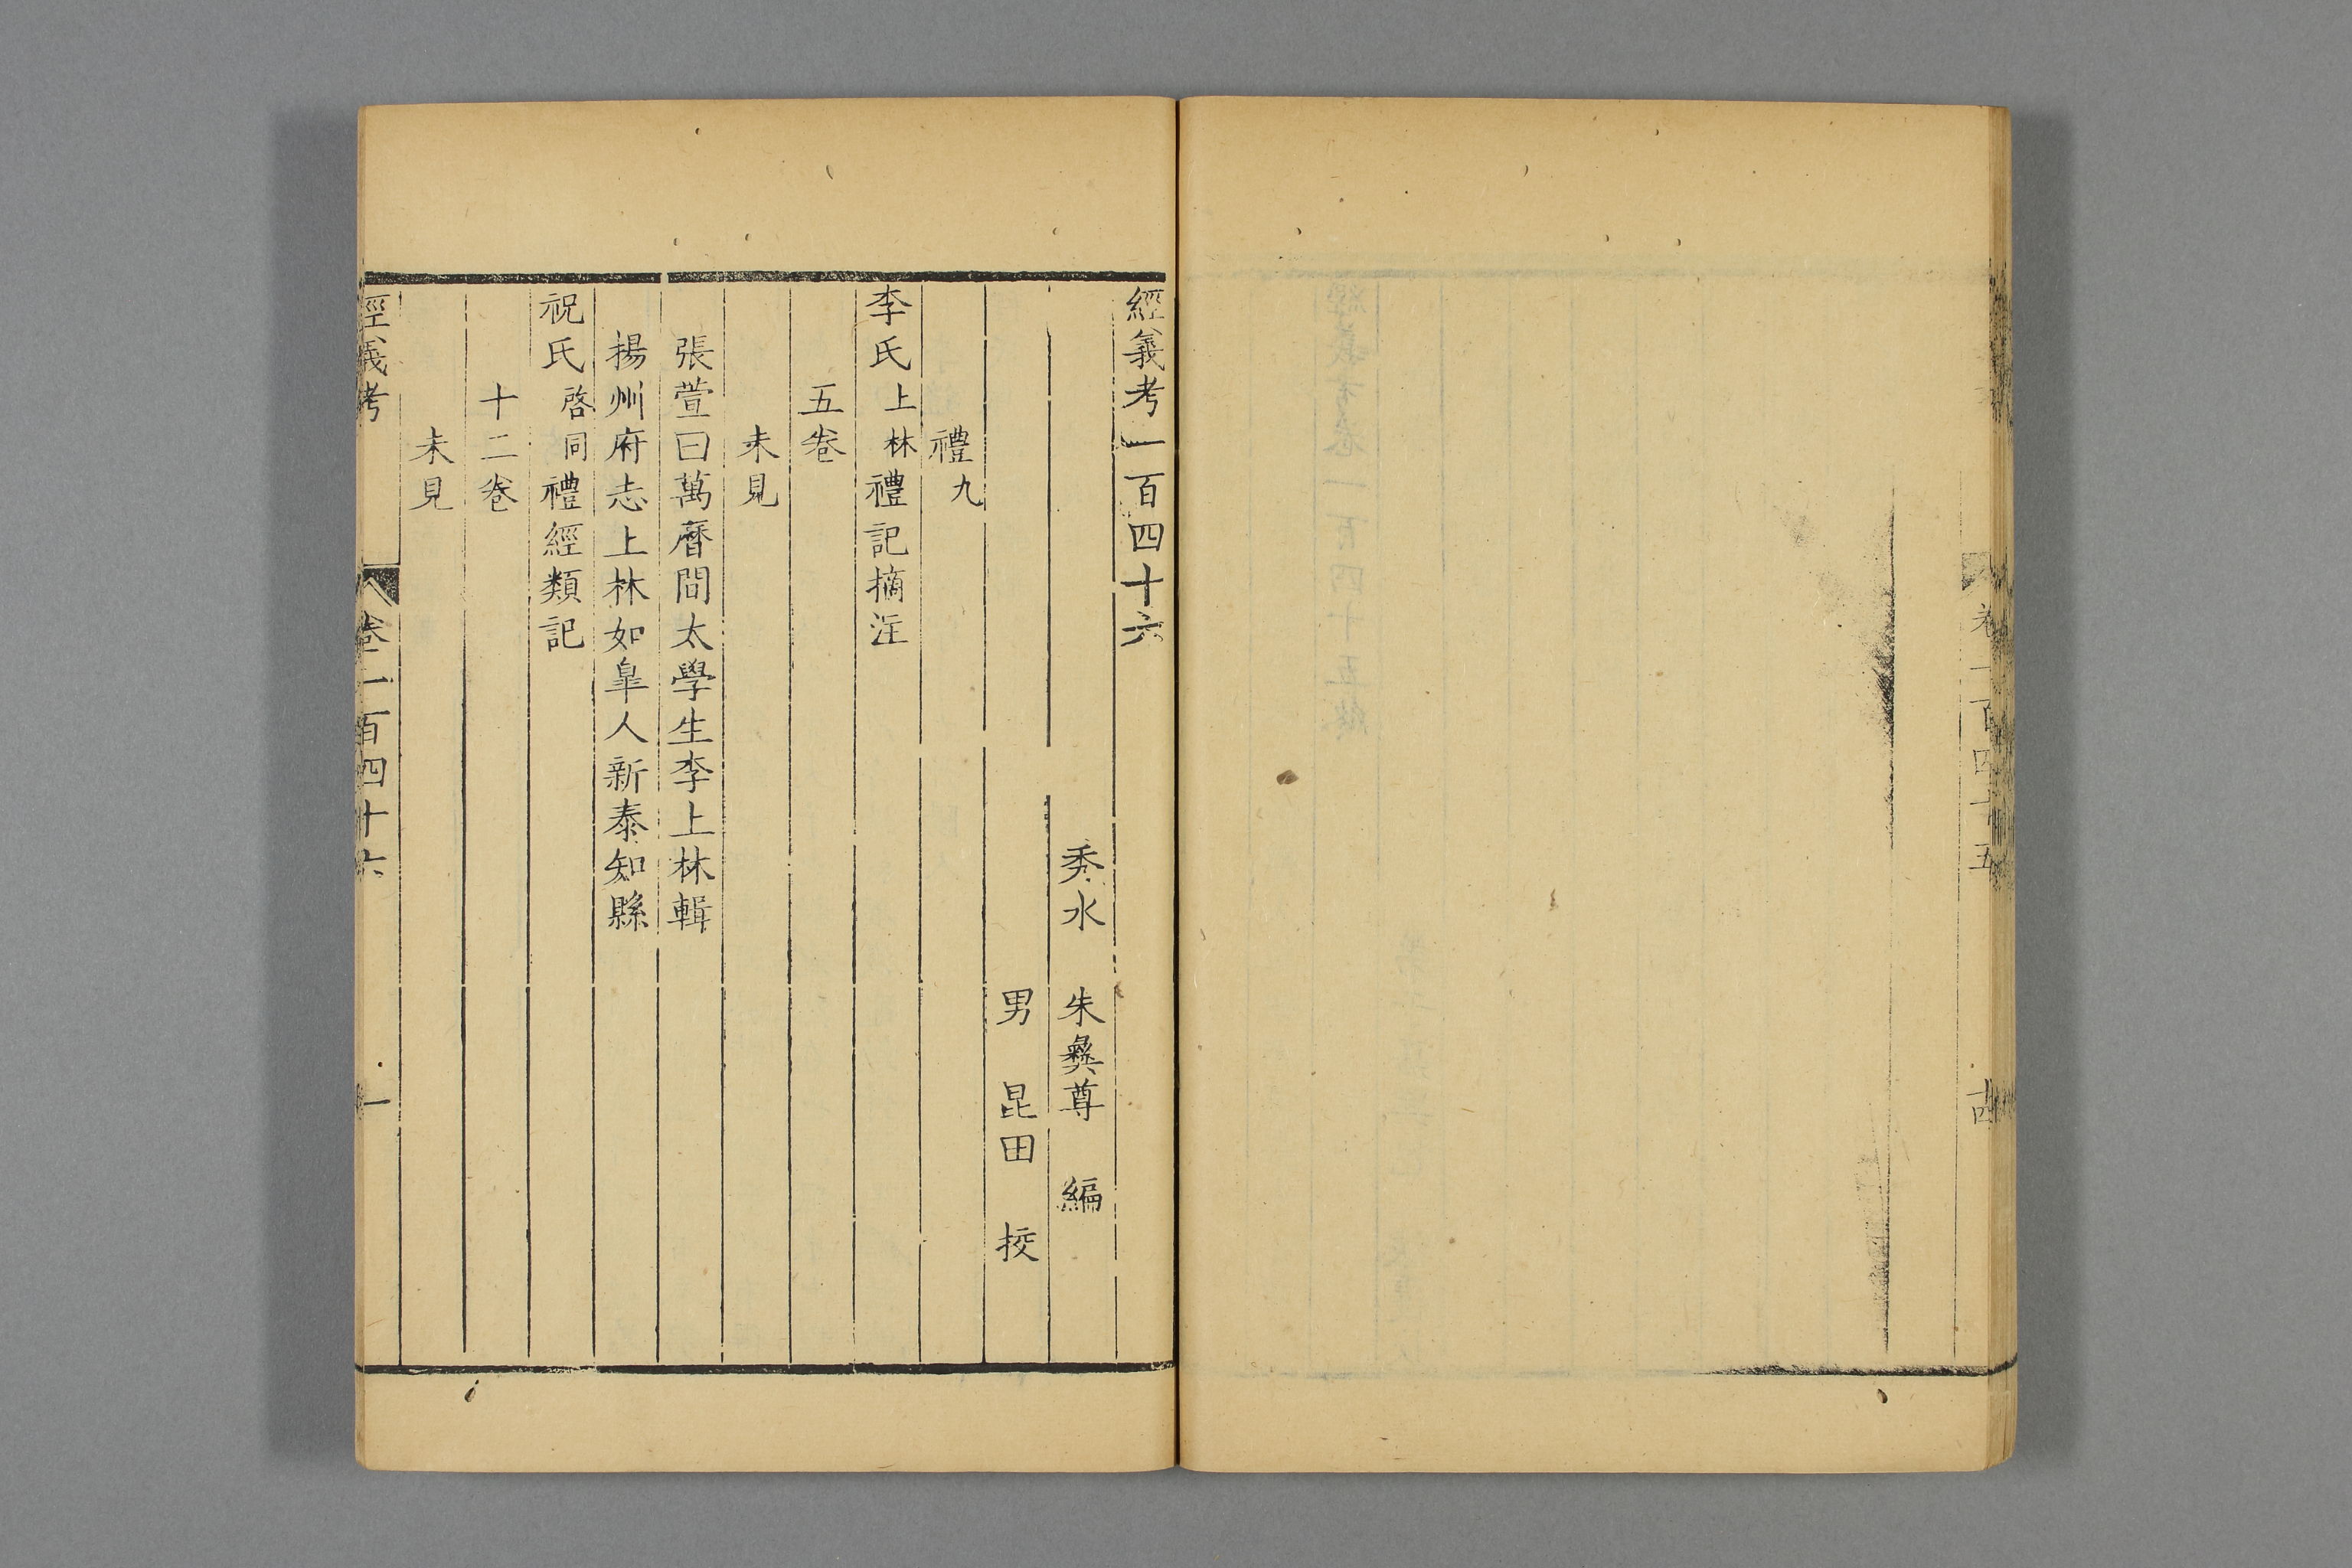 卷一百四十五
經義考一百四十六
秀水 朱彝尊 編
男 昆田 挍
禮九
李氏上林禮記摘注
五卷
未見
張萱曰萬曆間太學生李上林輯
揚州府志上林如臯人新泰知縣
祝氏啓同禮經類記
十二卷
未見
經義考 卷一百四十六 一